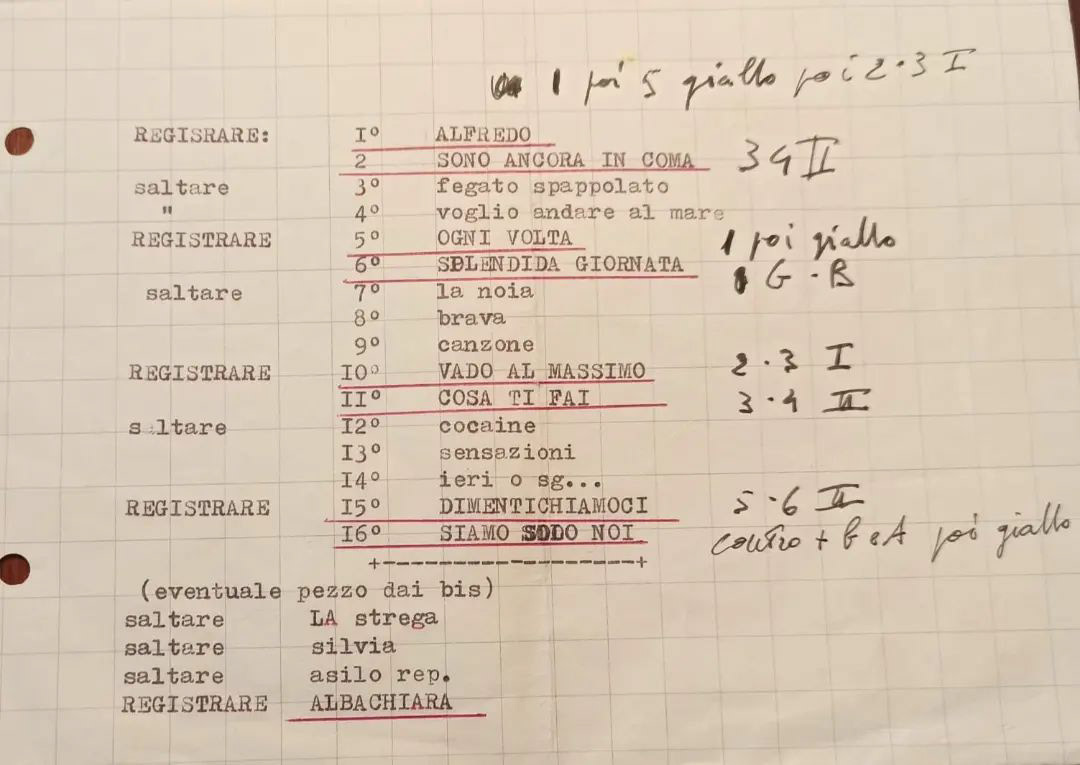 1 poi 5 giallo poi 2.3 I
REGISRARE: I° ALFREDO
2 SONO ANCORA IN COMA 3 4 II
saltare 3° fegato spappolato
" 4° voglio andare al mare
REGISTRARE 5° OGNI VOLTA 1 poi giallo
6° SPLENDIDA GIORNATA G. B
saltare 7° la noia
8° brava
9° canzone
REGISTRARE IO° VADO AL MASSIMO 2.3 I
II° COSA TI FAI 3.4 II
saltare I2° cocaine
I3° sensazioni
I4° ieri o sg...
REGISTRARE I5° DIMENTICHIAMOCI 5.6 II
I6° SIAMO SOLO NOI contro + B e A poi giallo
+------------------+
(eventuale pezzo dai bis)
saltare LA strega
saltare silvia
saltare asilo rep.
REGISTRARE ALBACHIARA